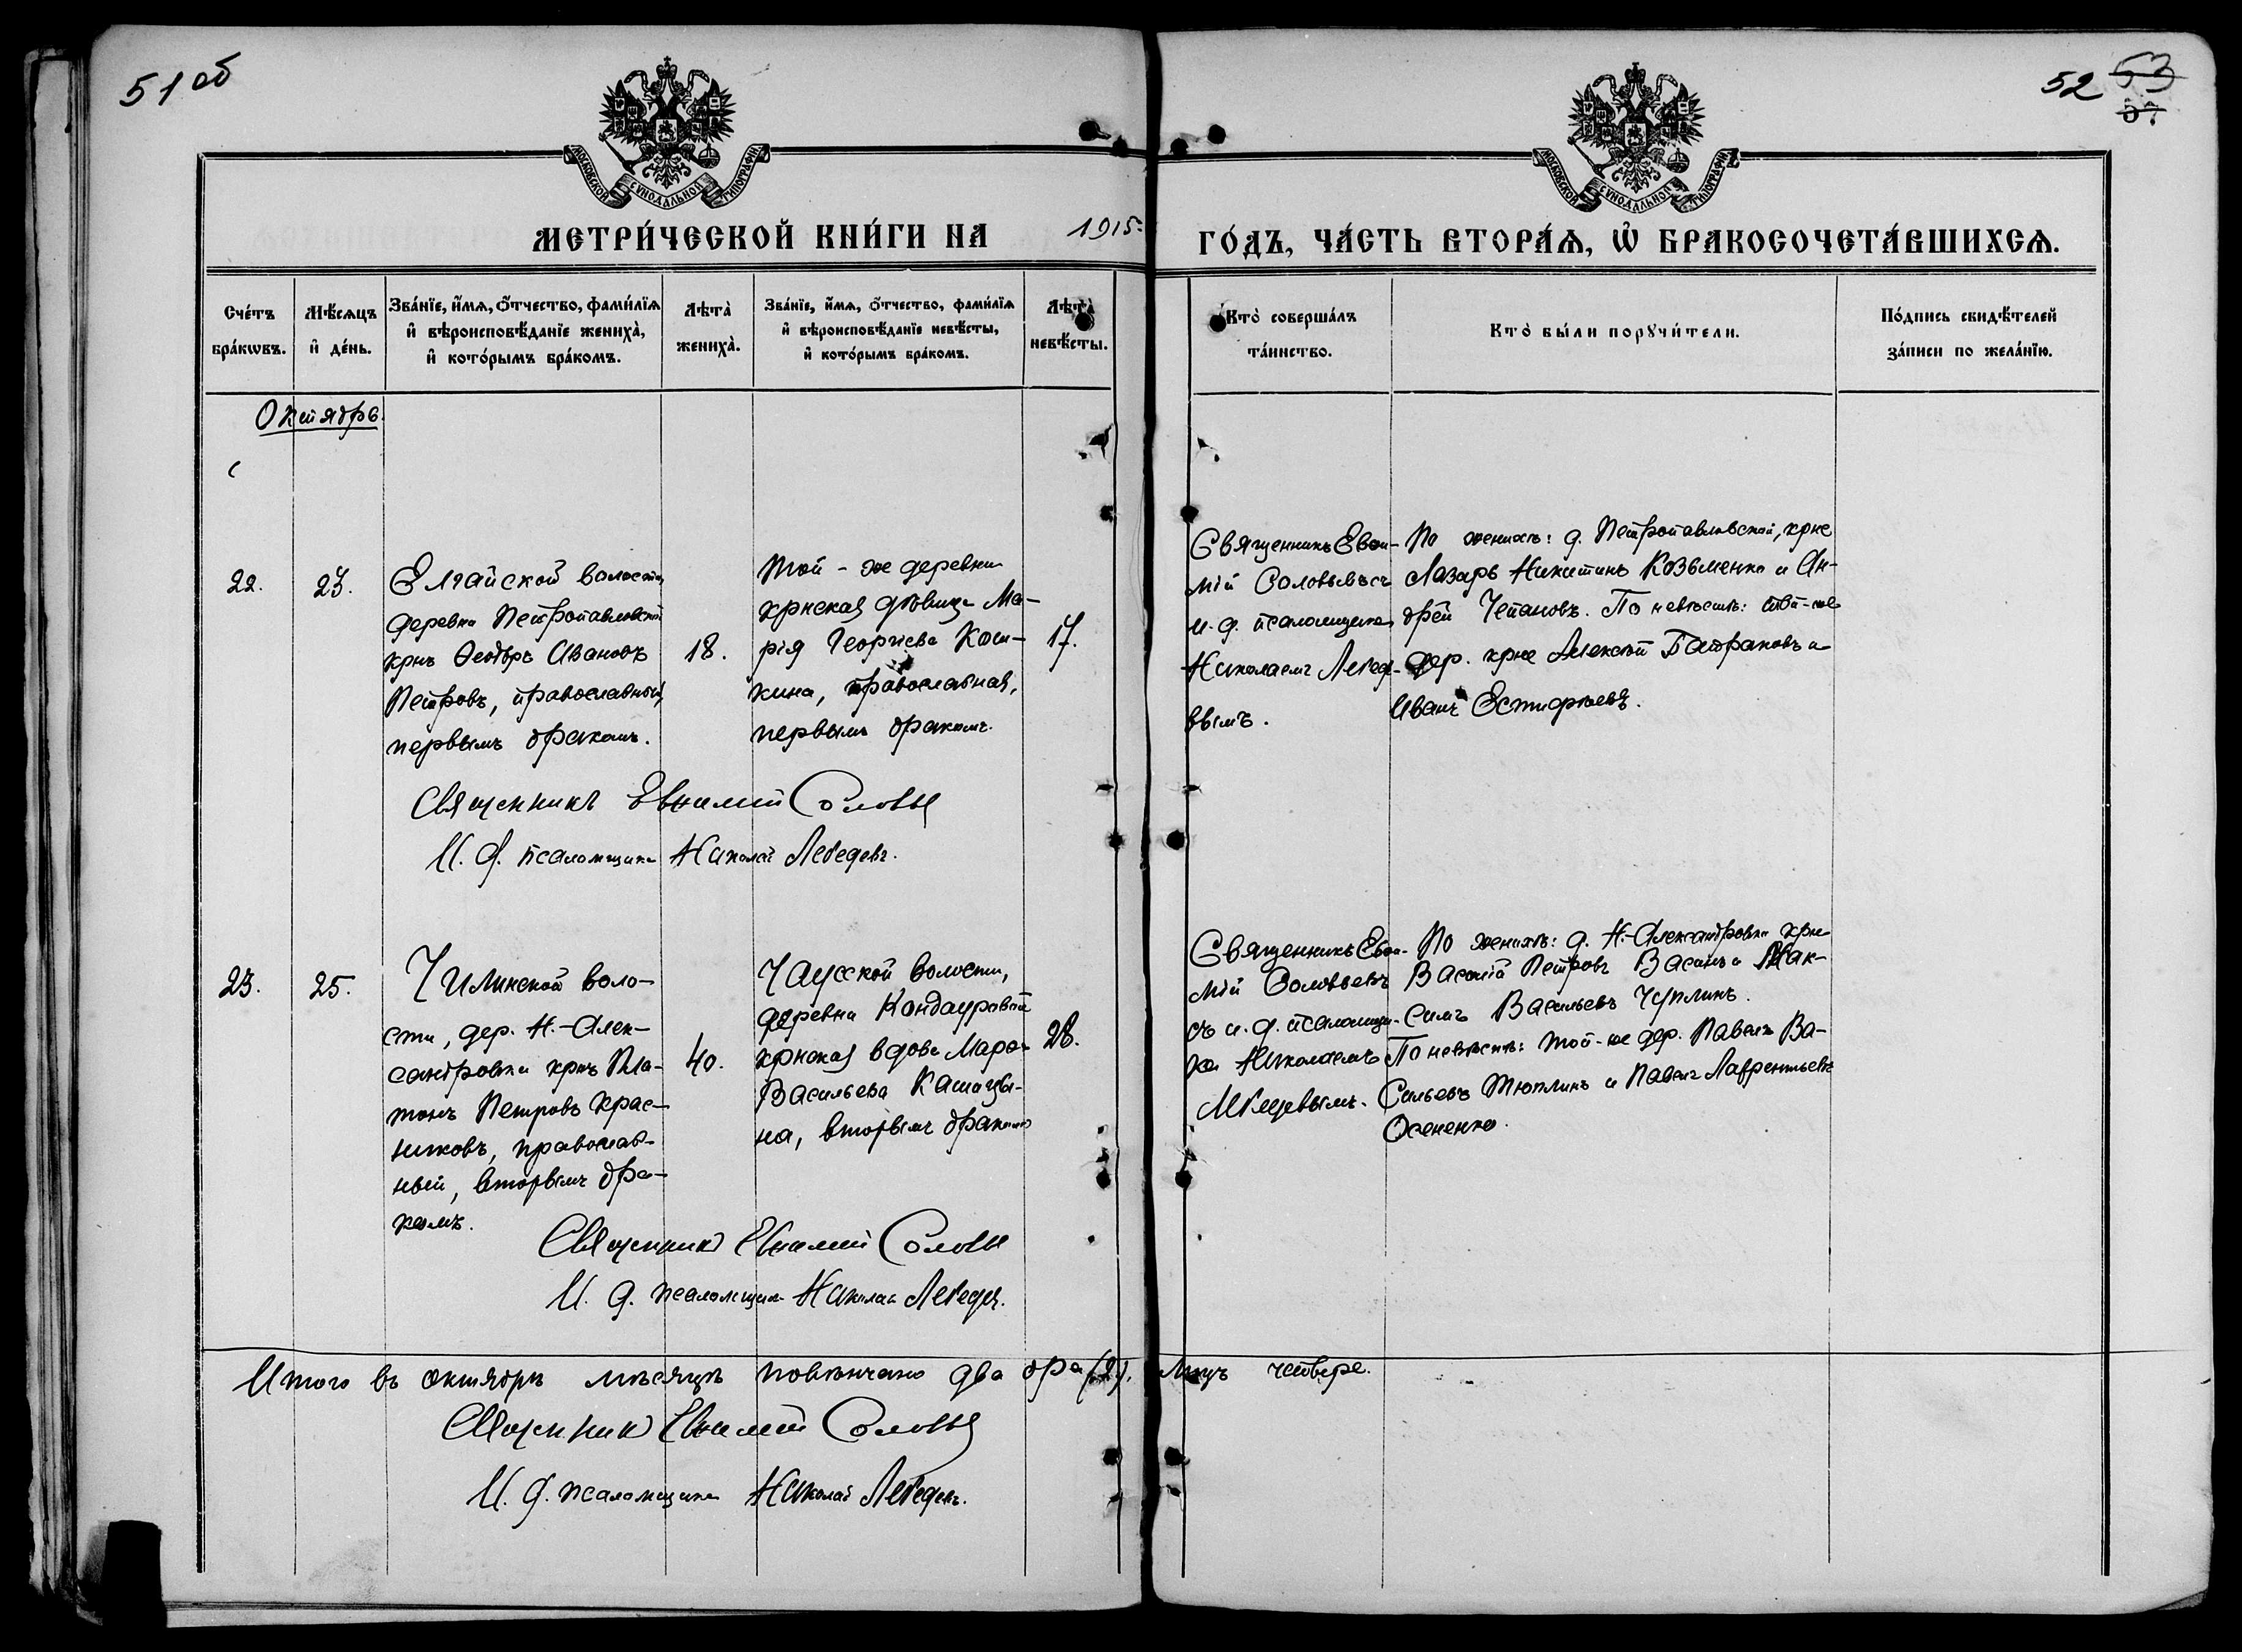 51 об
52 53
57
МОСКОВСКОЙ СУНОДАЛЬНОЙ ТИПОГРАФІИ
МОСКОВСКОЙ СУНОДАЛЬНОЙ ТИПОГРАФІИ
МЕТРИ́ЧЕСКОЙ КНИ́ГИ НА 1915 ГО́ДЪ, ЧА́СТЬ ВТОРА́Ѧ, Ѽ БРАКОСОЧЕТА́ВШИХСѦ.
Сче́тъ
бра́кѡвъ.
Мѣ́сѧцъ
и҆ де́нь.
Зва́нїе, и҆́мѧ, ѻ҆́тчество, фами́лїѧ
и҆ вѣроисповѣ́данїе жениха̀,
и҆ кото́рымъ бра́комъ.
Лѣта̀
жениха̀.
Зва́нїе, и҆́мѧ, ѻ҆́тчество, фами́лїѧ
и҆ вѣроисповѣ́данїе невѣ́сты,
и҆ кото́рымъ бра́комъ.
Лѣта̀
невѣ́сты.
Кто̀ соверша́лъ
та́инство.
Кто̀ бы́ли порꙋчи́тели.
По́дпись свидѣ́телей
за́писи по жела́нїю.
Октябрь.
22.
23.
Елгайской волости,
деревни Петропавловской
крнъ Ѳеодоръ Ивановъ
Петровъ, православный,
первымъ бракомъ.
18.
Той-же деревни
крнская дѣвица Ма-
рія Георгіева Кош-
кина, православная,
первымъ бракомъ.
17.
Священникъ Евѳи-
мій Соловьевъ съ
и. д. псаломщика
Николаемъ Лебеде-
вымъ.
По женихѣ: д. Петропавловской, крне
Лазарь Никитинъ Козьменко и Ан-
дрей Чепановъ. По невѣстѣ: той-же
дер. крне Алексѣй Батраковъ и
Иванъ Естифѣевъ.
Священникъ Евѳимій Соловьев
И. д. псаломщика Николай Лебедевъ.
23.
25.
Чилинской воло-
сти, дер. Н.-Алек-
сандровки крнъ Пла-
тонъ Петровъ Крас-
никовъ, православ-
ный, вторымъ бра-
комъ.
40.
Чаусской волости,
деревни Кондауровой
крнская вдова Марѳа
Васильева Кашицы-
на, вторымъ бракомъ
28.
Священникъ Евѳи-
мій Соловьевъ
съ и. д. псаломщи-
ка Николаемъ
Лебедевымъ.
По женихѣ: д. Н.-Александровки крне
Василій Петровъ Васинъ и Мак-
симъ Васильевъ Чуплинъ.
По невѣстѣ: той-же дер. Павелъ Ва-
сильевъ Тюплинъ и Павелъ Лаврентьевъ
Осененко.
Священник Евѳимій Соловьев
И. д. псаломщика Николай Лебедев.
Итого въ октябрѣ мѣсяцѣ повѣнчано два бра (2). Лицъ четверо.
Священник Евѳимій Соловьев
И. д. псаломщика Николай Лебедевъ.